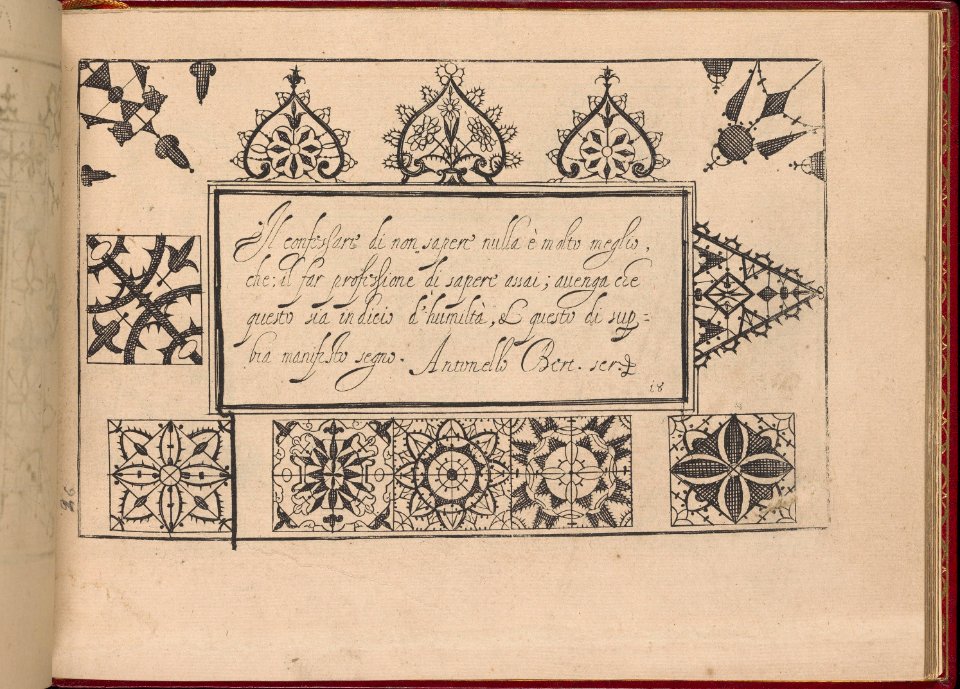 Il confessare di non sapere nulla è molto meglio,
che: il far professione di sapere assai; auenga che
questo sia indicio d'humiltà, & questo di sup=
bia manifesto segno. Antonello Bert. ser:
18
26